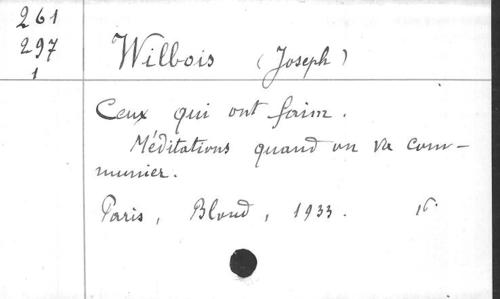 261
297
1
Wilbois (Joseph)
Ceux qui ont faim.
Méditations quand on va com-
munier.
Paris, Bloud, 1933.